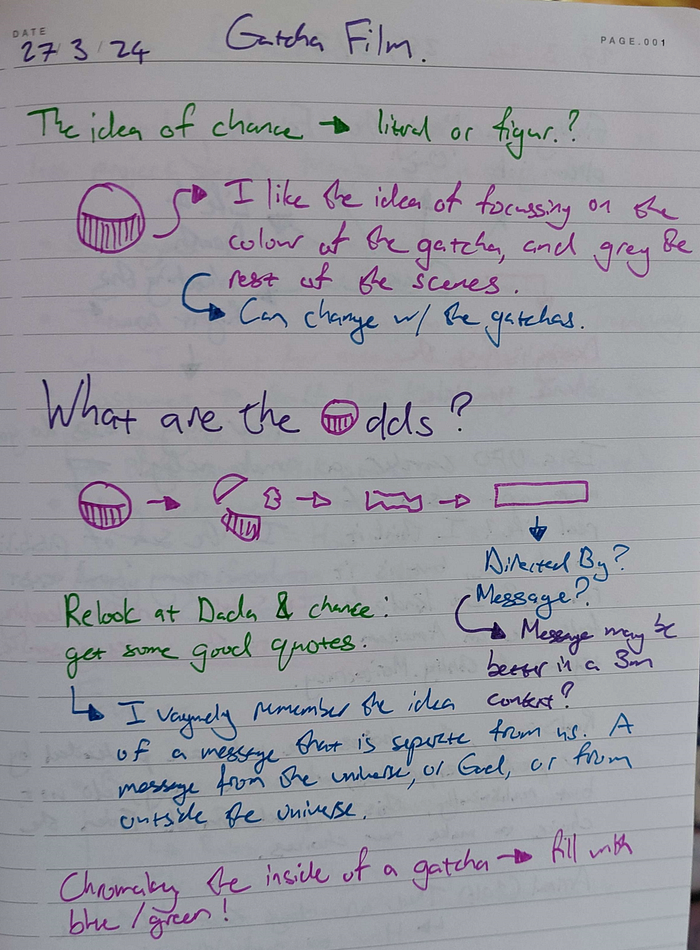 DATE
27/3/24
Gatcha Film.
PAGE.001
The idea of chance → literal or figur.?
I like the idea of focussing on the
colour of the gatcha, and grey the
rest of the scenes.
Can change w/ the gatchas.
What are the Odds?
Directed By?
Message?
Message may be
better in a 3min
context?
Relook at Dada & chance:
get some good quotes.
I vaguely remember the idea
of a message that is separate from us. A
message from the universe, or God, or from
outside the universe.
Chromakey the inside of a gatcha → fill with
blue/green!